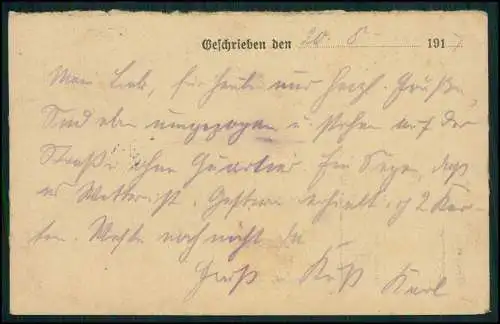 Geschrieben den 20. 8. 1917
Mein Lieb, für heute nur herzl. Grüße,
Sind eben umgezogen u. stehen auf der
Straße ohne Quartier. Ein Segen, daß
es Wetter ist. Gestern erhielt ich 2 Kar-
ten. Paste noch nicht da
Gruß u. Kuß Karl